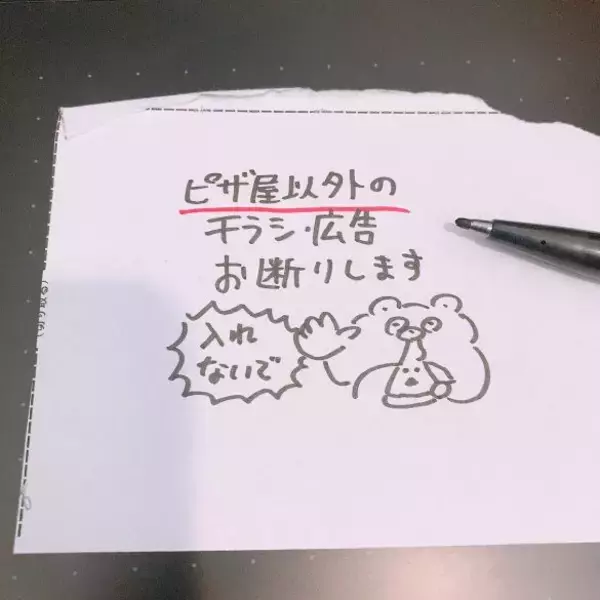 ピザ屋以外の
チラシ・広告
お断りします
入れ
ないで
(切り取る)